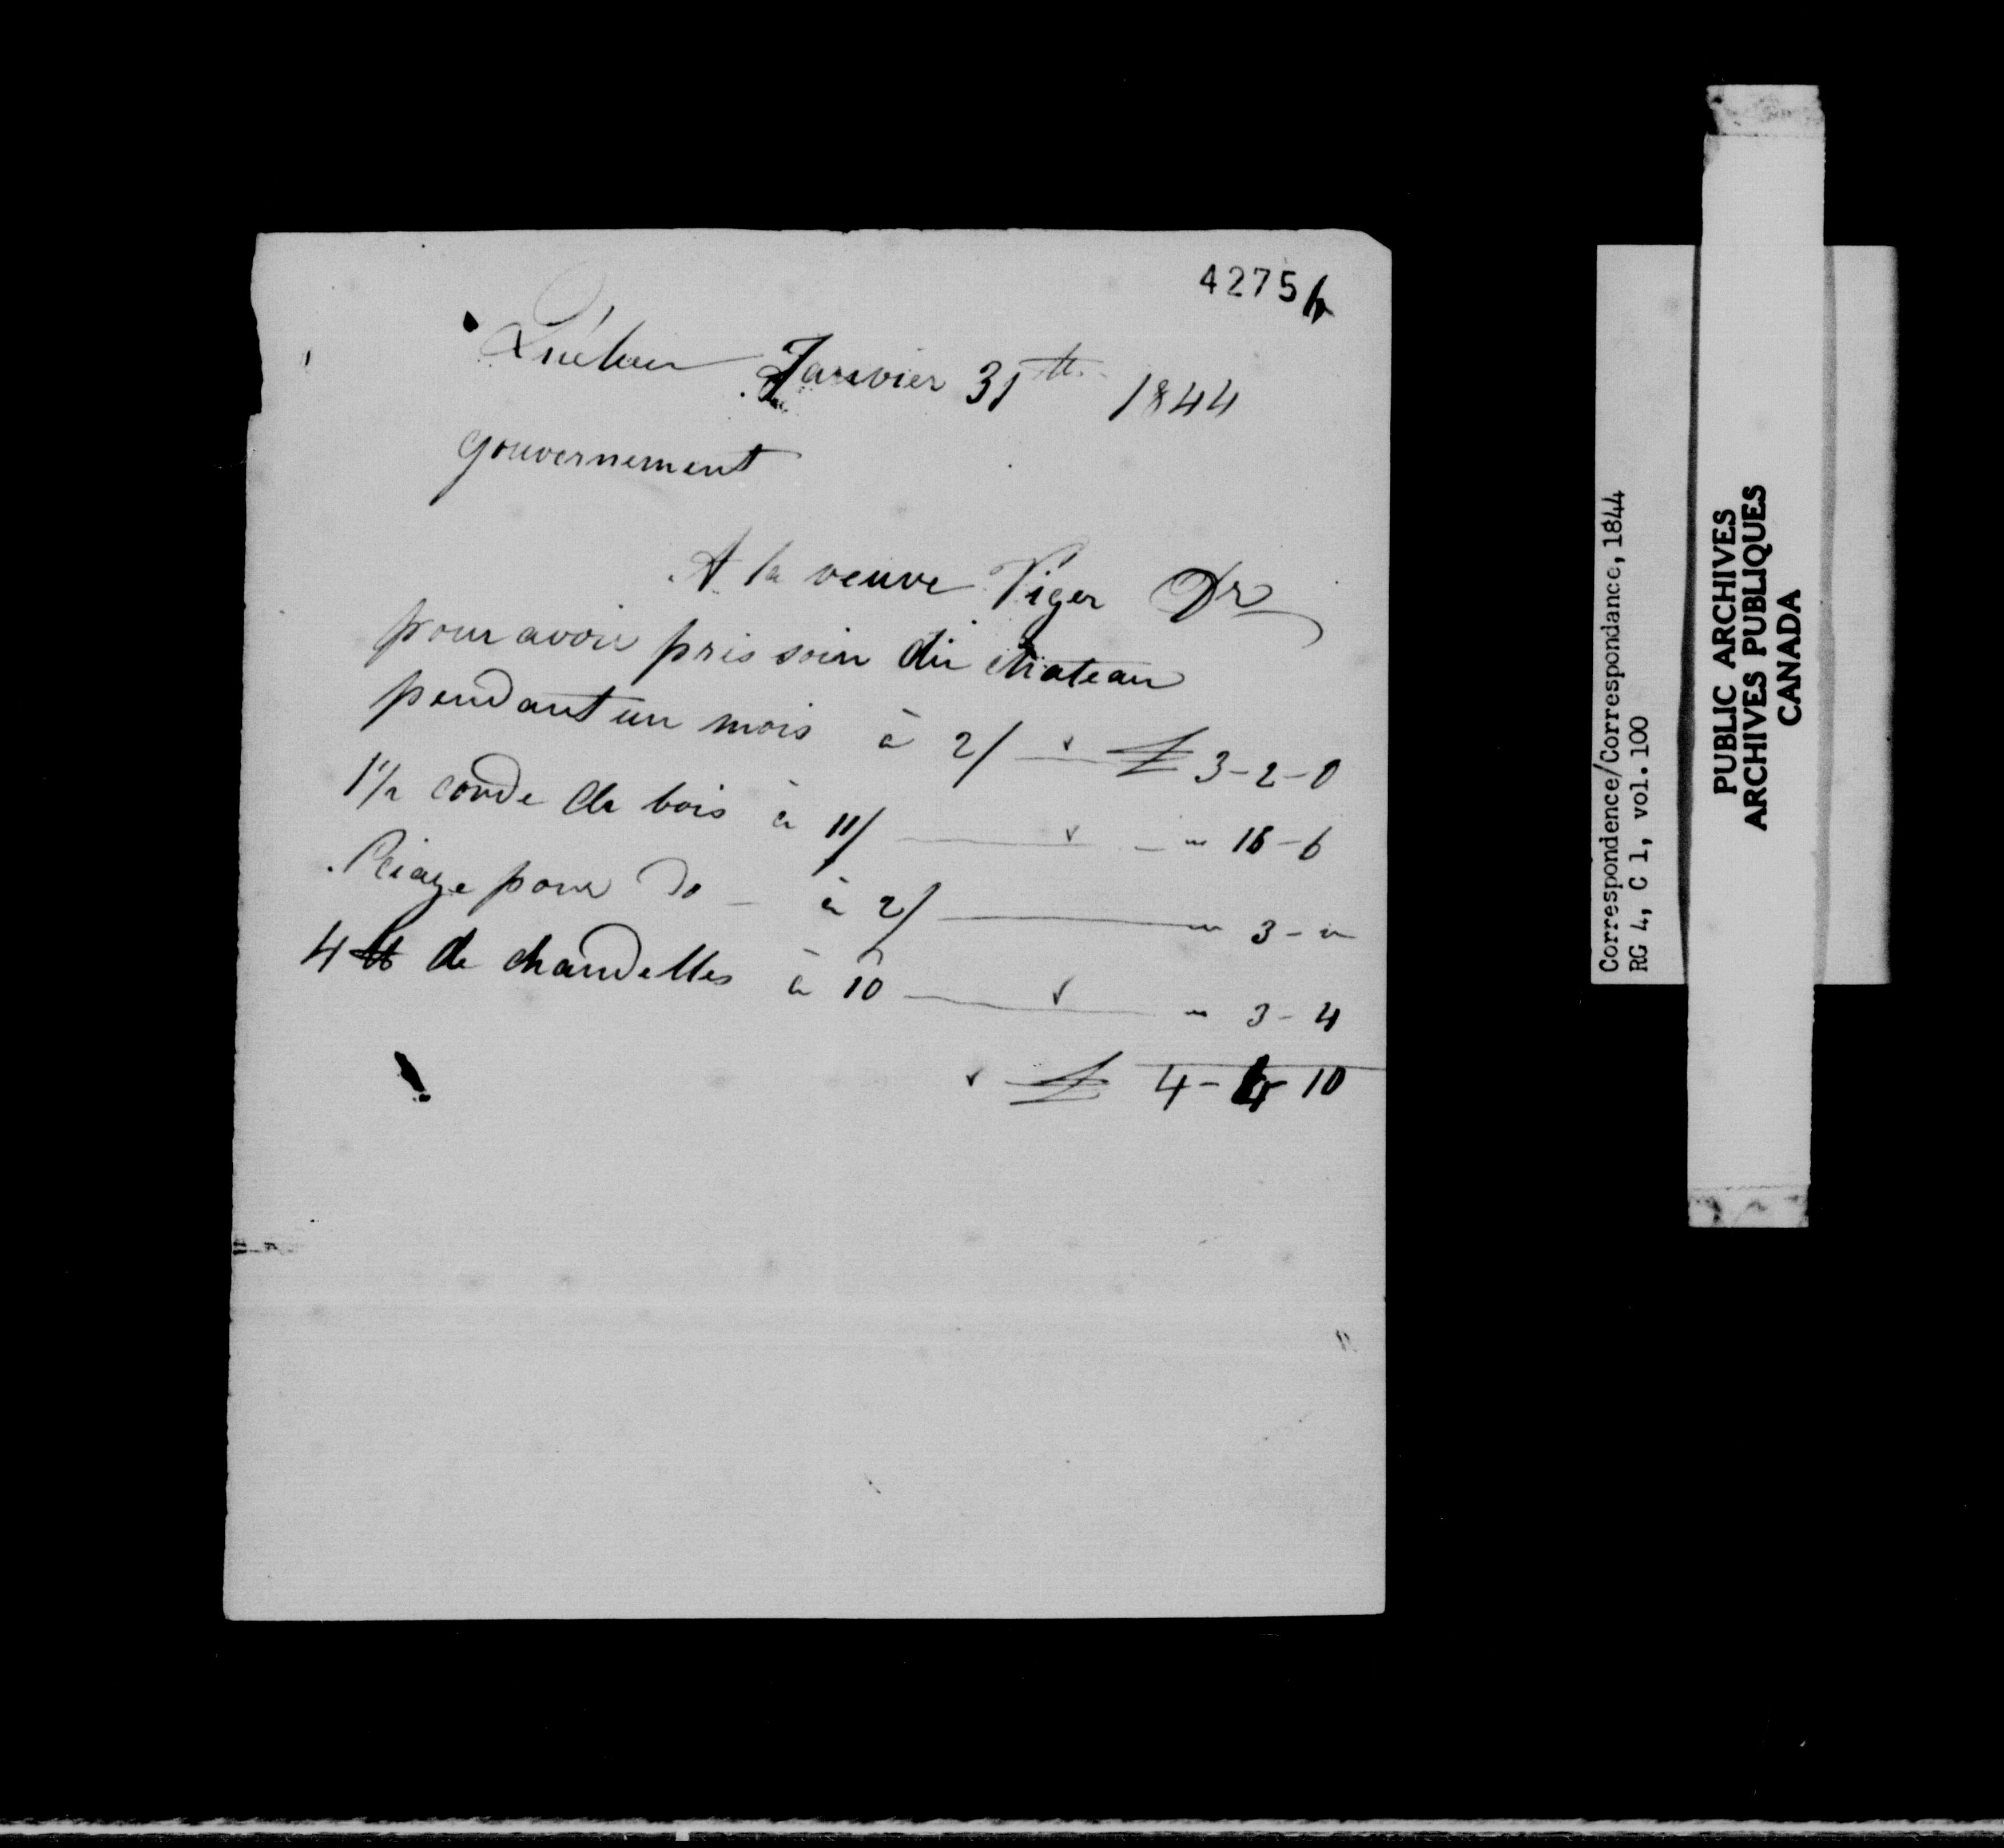 4275 h
Québec Janvier 31th 1844
gouvernement
A la veuve Viger Dr
pour avoir pris soin du chateau
pendant un mois à 2/ £ 3-2-0
1 1/2 corde de bois à 11/ " 16-6
Sciage pour do à 2/ " 3-"
4 lb de chandelles à 10 " 3-4
£ 4-4-10
Correspondence/Correspondance, 1844
RG 4, C 1, vol.100
PUBLIC ARCHIVES
ARCHIVES PUBLIQUES
CANADA